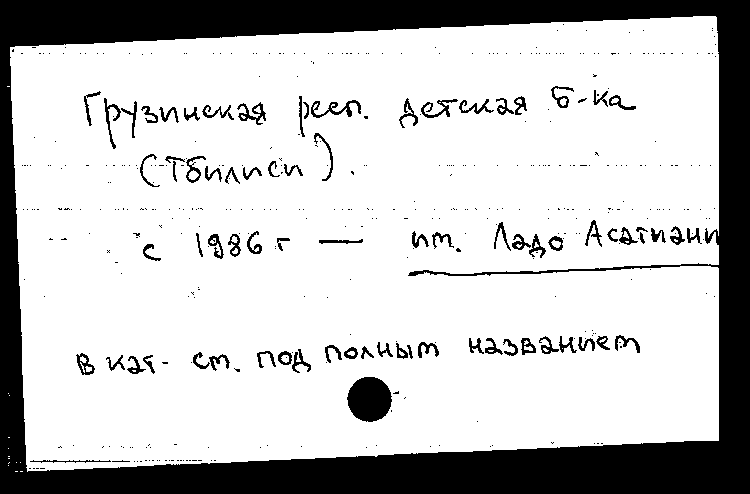 Грузинская респ. детская б-ка
(Тбилиси).
с 1986 г — им. Ладо Асатиани
в кат. см. под полным названием